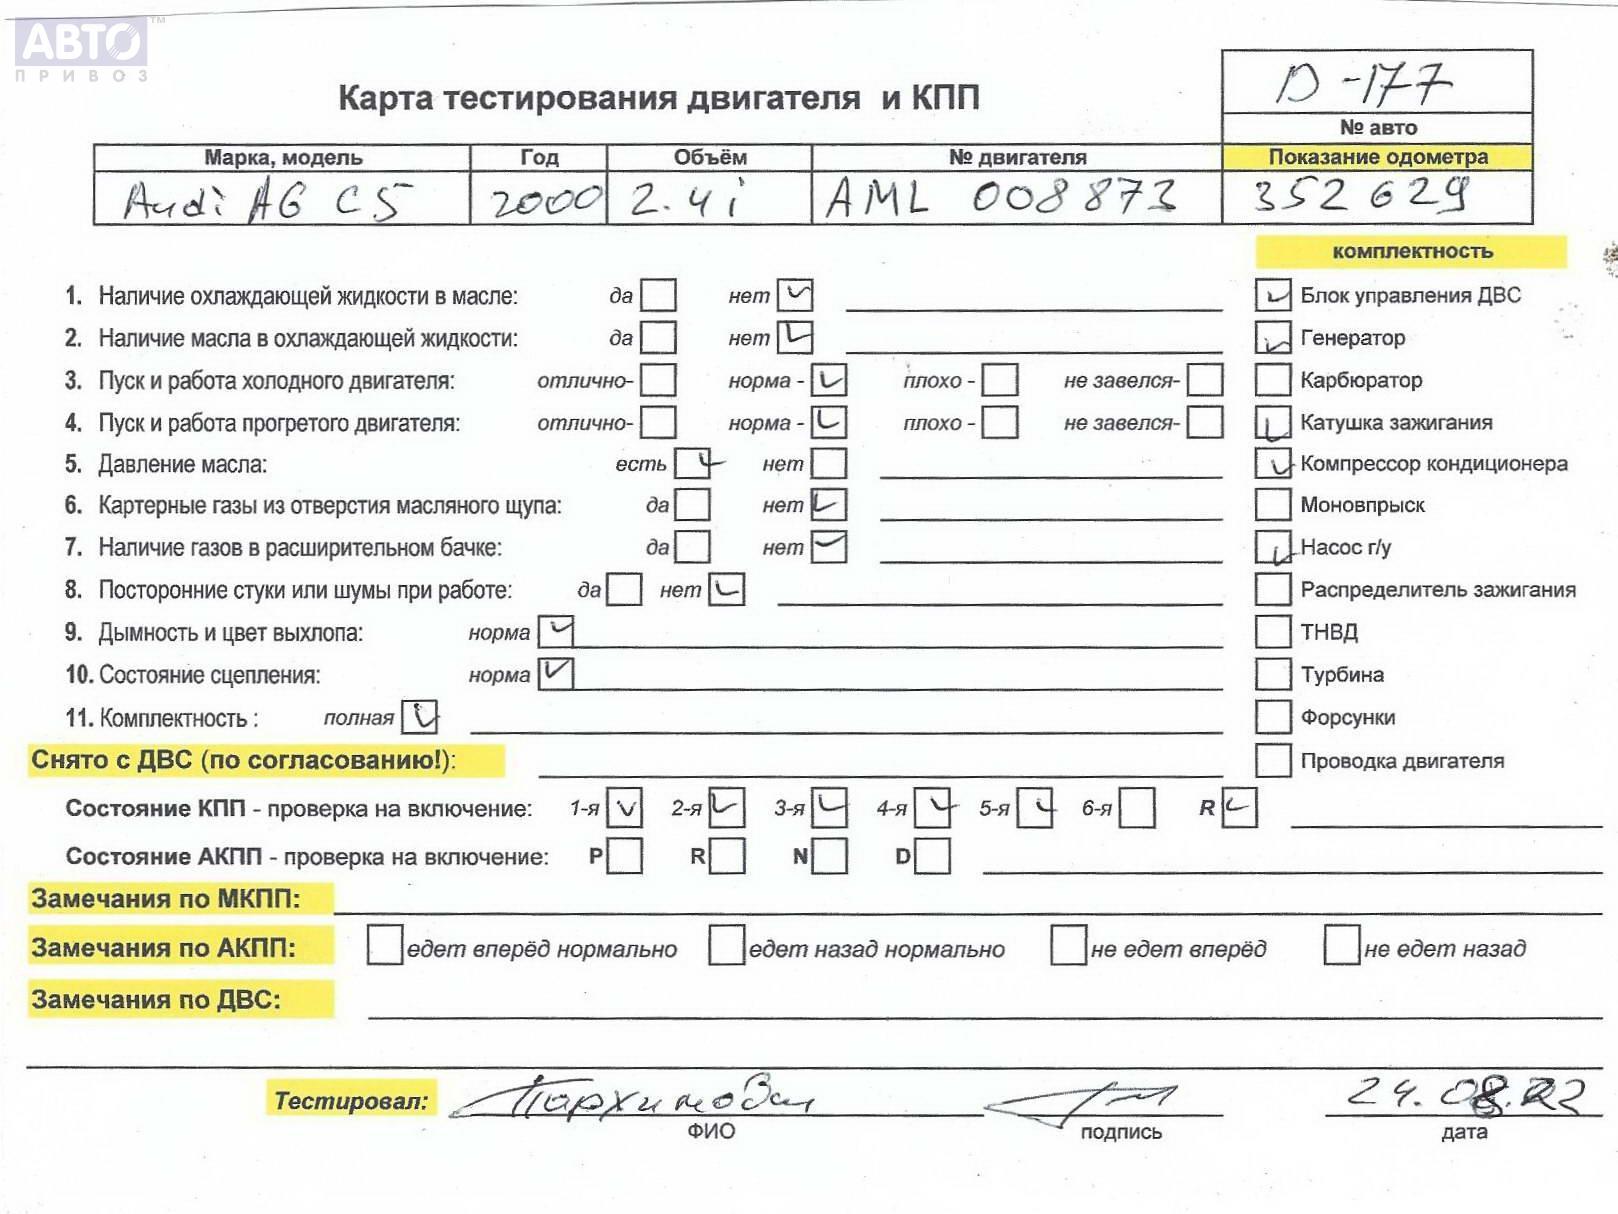 АВТО™
ПРИВОЗ
Карта тестирования двигателя и КПП
D-177
№ авто
Марка, модель Год Объём № двигателя Показание одометра
Audi A6 C5 2000 2.4i AML 008873 352629
комплектность
1. Наличие охлаждающей жидкости в масле: да нет Блок управления ДВС
2. Наличие масла в охлаждающей жидкости: да нет Генератор
3. Пуск и работа холодного двигателя: отлично- норма - плохо - не завелся- Карбюратор
4. Пуск и работа прогретого двигателя: отлично- норма - плохо - не завелся- Катушка зажигания
5. Давление масла: есть нет Компрессор кондиционера
6. Картерные газы из отверстия масляного щупа: да нет Моновпрыск
7. Наличие газов в расширительном бачке: да нет Насос г/у
8. Посторонние стуки или шумы при работе: да нет Распределитель зажигания
9. Дымность и цвет выхлопа: норма ТНВД
10. Состояние сцепления: норма Турбина
11. Комплектность : полная Форсунки
Снято с ДВС (по согласованию!): Проводка двигателя
Состояние КПП - проверка на включение: 1-я 2-я 3-я 4-я 5-я 6-я R
Состояние АКПП - проверка на включение: P R N D
Замечания по МКПП:
Замечания по АКПП: едет вперёд нормально едет назад нормально не едет вперёд не едет назад
Замечания по ДВС:
Тестировал: 24.08.22
ФИО подпись дата